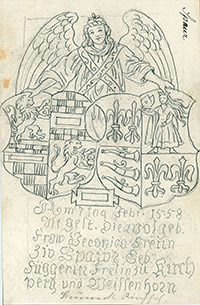 Spaur
Montag Febr: 1558
Ist gest. Die wolgeb.
Frow Veronica Freiin
Zuo Spawr Geb.
Függerin Freiin zu Kirch
perg und Weissenhorn